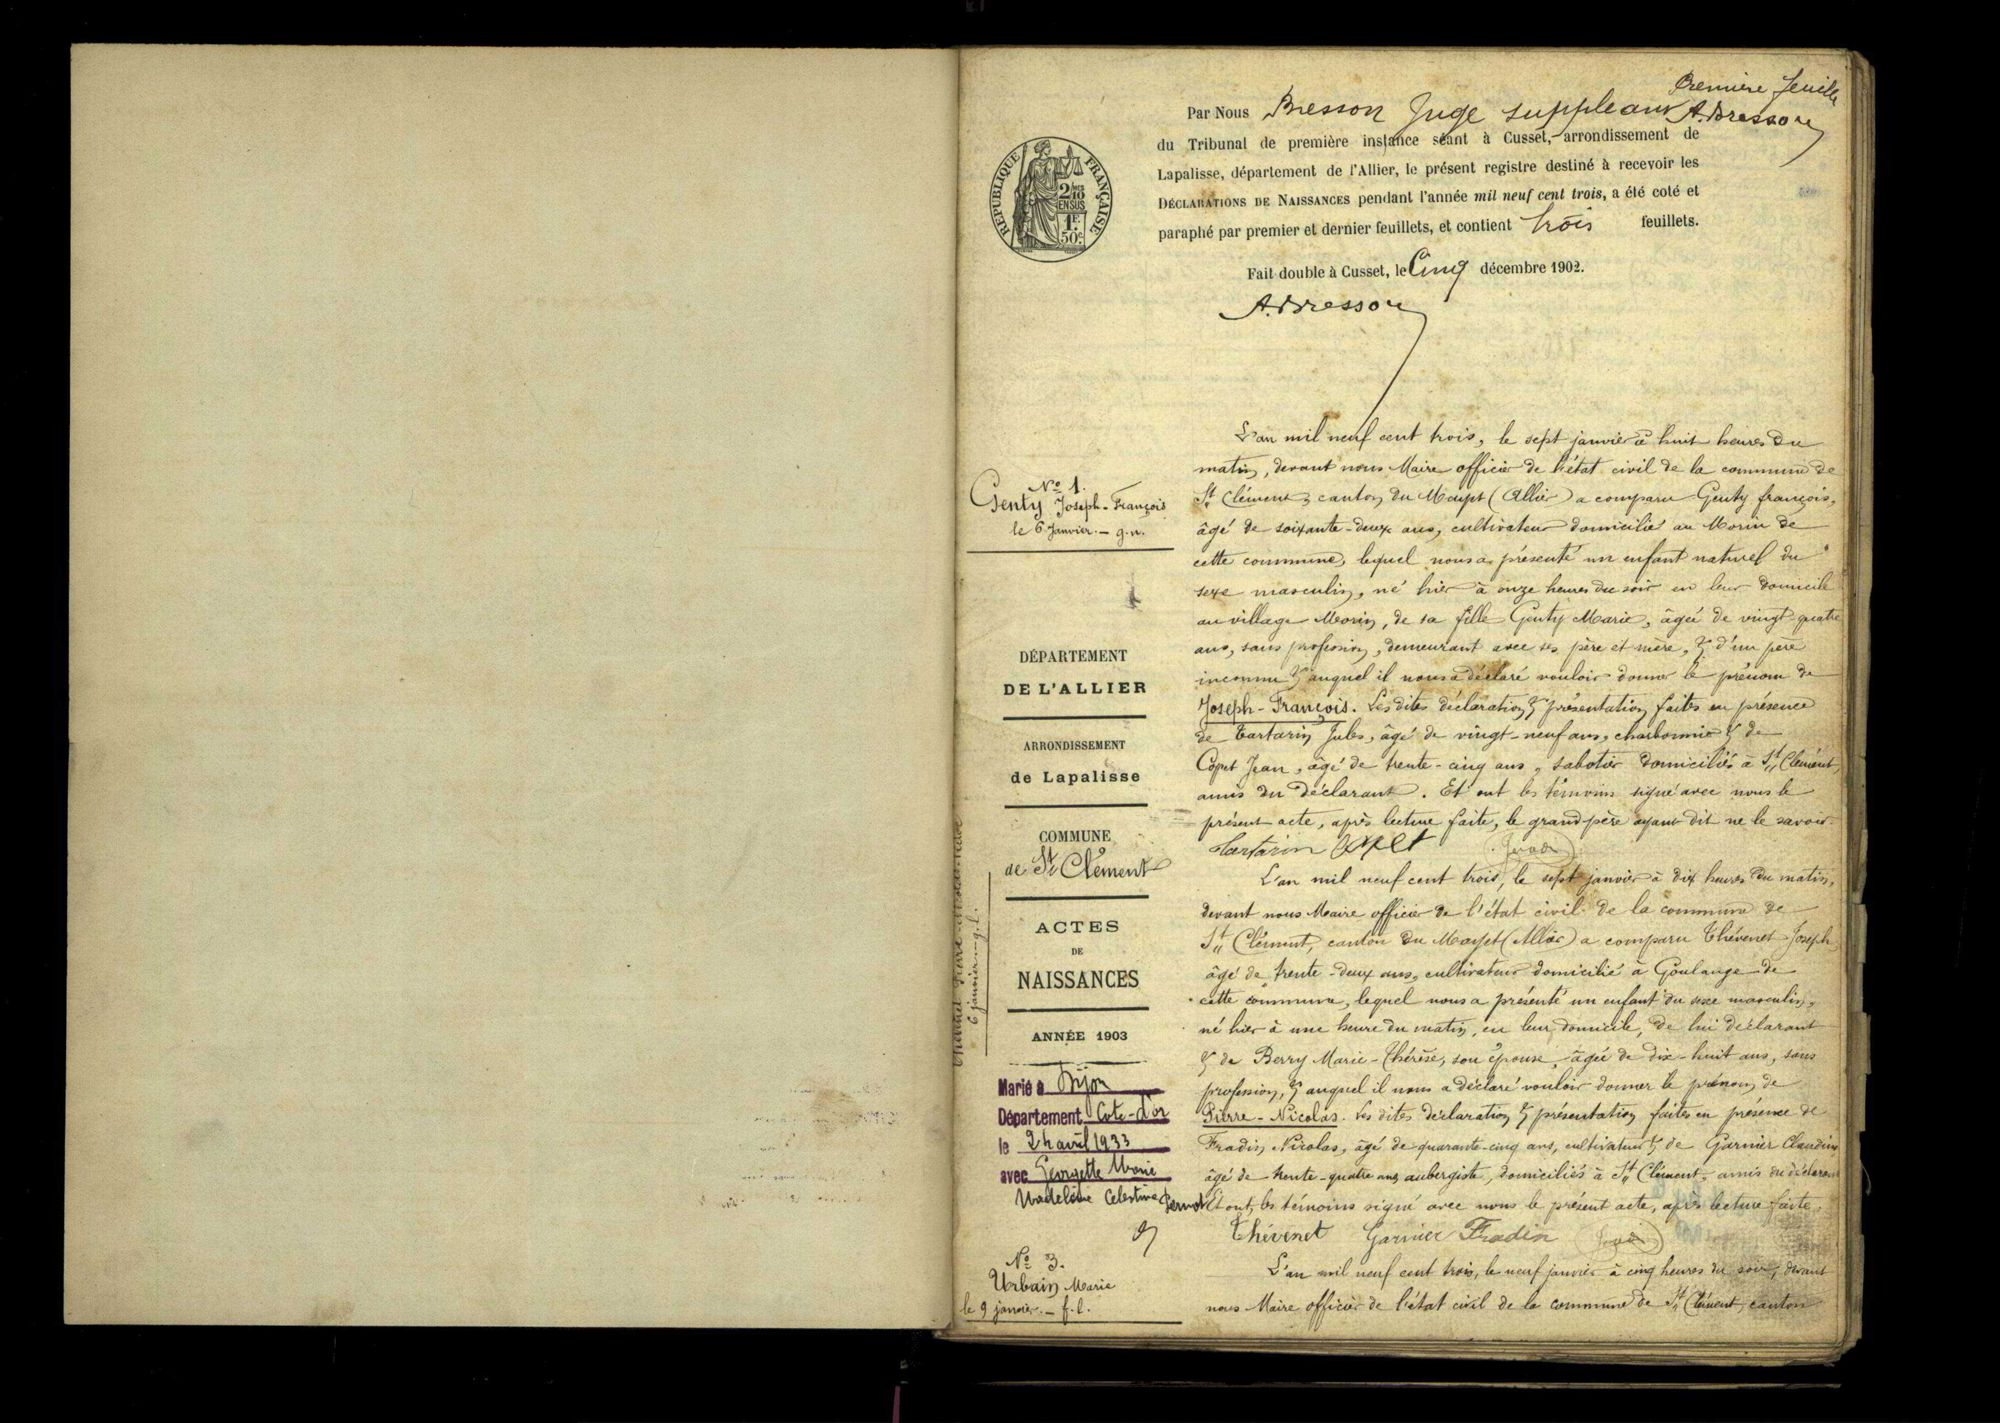 Première feuille
A. Bresson
Par Nous Bresson Juge suppléant
du Tribunal de première instance séant à Cusset, arrondissement de
Lapalisse, département de l'Allier, le présent registre destiné à recevoir les
DÉCLARATIONS DE NAISSANCES pendant l'année mil neuf cent trois, a été coté et
paraphé par premier et dernier feuillets, et contient trois feuillets.
Fait double à Cusset, le Cinq décembre 1902.
A. Bresson
RÉPUBLIQUE FRANÇAISE
2/10
EN SUS
1F.
50c.
No 1.
Genty Joseph-François
le 6 Janvier. - g.n.
DÉPARTEMENT
DE L'ALLIER
ARRONDISSEMENT
de Lapalisse
COMMUNE
de St Clément
ACTES
DE
NAISSANCES
ANNÉE 1903
6 janvier - g.l.
Marié à Dijon
Département Cote-d'or
le 24 avril 1933
avec Georgette Marie
Madeleine Celestine Pernot
No 3.
Urbain Marie
le 9 janvier. - f.l.
L'an mil neuf cent trois, le sept janvier à huit heures du
matin, devant nous Maire officier de l'état civil de la commune de
St Clément, canton du Mayet (Allier) a comparu Genty françois,
âgé de soixante-deux ans, cultivateur domicilié au Morin de
cette commune, lequel nous a présenté un enfant naturel du
sexe masculin, né hier à onze heures du soir en leur domicile
au village Morin, de sa fille Genty Marie, âgée de vingt-quatre
ans, sans profession, demeurant avec ses père et mère, & d'un père
inconnu & auquel il nous a déclaré vouloir donner le prénom de
Joseph-François. Les dites déclaration & présentation faites en présence
de Tartarin Jules, âgé de vingt-neuf ans, charbonnier & de
Copet Jean, âgé de trente-cinq ans, sabotier domiciliés à St Clément,
amis du déclarant. Et ont les témoins signé avec nous le
présent acte, après lecture faite, le grand-père ayant dit ne le savoir.
Tartarin Copet
L'an mil neuf cent trois, le sept janvier à dix heures du matin,
devant nous Maire officier de l'état civil de la commune de
St Clément, canton du Mayet (Allier) a comparu Thévenet Joseph
âgé de trente-deux ans, cultivateur domicilié à Goulange de
cette commune, lequel nous a présenté un enfant du sexe masculin,
né hier à une heure du matin, en leur domicile, de lui déclarant
& de Berry Marie-Thérèse, son épouse, âgée de dix-huit ans, sans
profession, & auquel il nous a déclaré vouloir donner le prénom de
Pierre-Nicolas. Les dites déclaration & présentation faites en présence de
Fradin Nicolas, âgé de quarante-cinq ans, cultivateur & de Garnier Claudius
âgé de trente-quatre ans aubergiste, domiciliés à St Clément, amis du déclarant
Et ont, les témoins signé avec nous le présent acte, après lecture faite,
Thévenet Garnier Fradin
L'an mil neuf cent trois, le neuf janvier à cinq heures du soir, devant
nous Maire officier de l'état civil de la commune de St Clément, canton